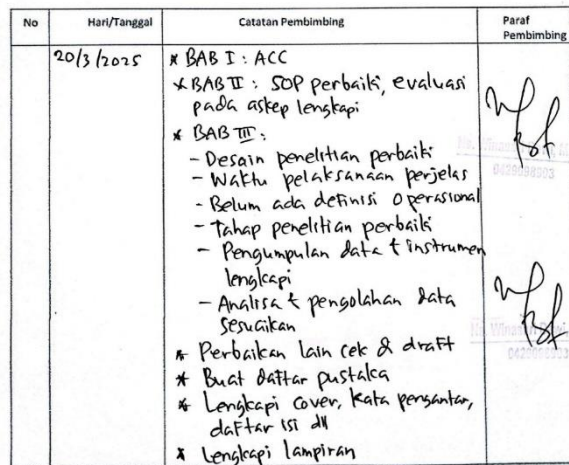 No
Hari/Tanggal
Catatan Pembimbing
Paraf
Pembimbing
20/3/2025
* BAB I : ACC
* BAB II : SOP perbaiki, evaluasi
pada askep lengkapi
* BAB III :
- Desain penelitian perbaiki
- Waktu pelaksanaan perjelas
- Belum ada definisi operasional
- Tahap penelitian perbaiki
- Pengumpulan data & instrumen
lengkapi
- Analisa & pengolahan data
sesuaikan
* Perbaikan lain cek di draft
* Buat daftar pustaka
* Lengkapi cover, kata pengantar,
daftar isi dll
* Lengkapi lampiran